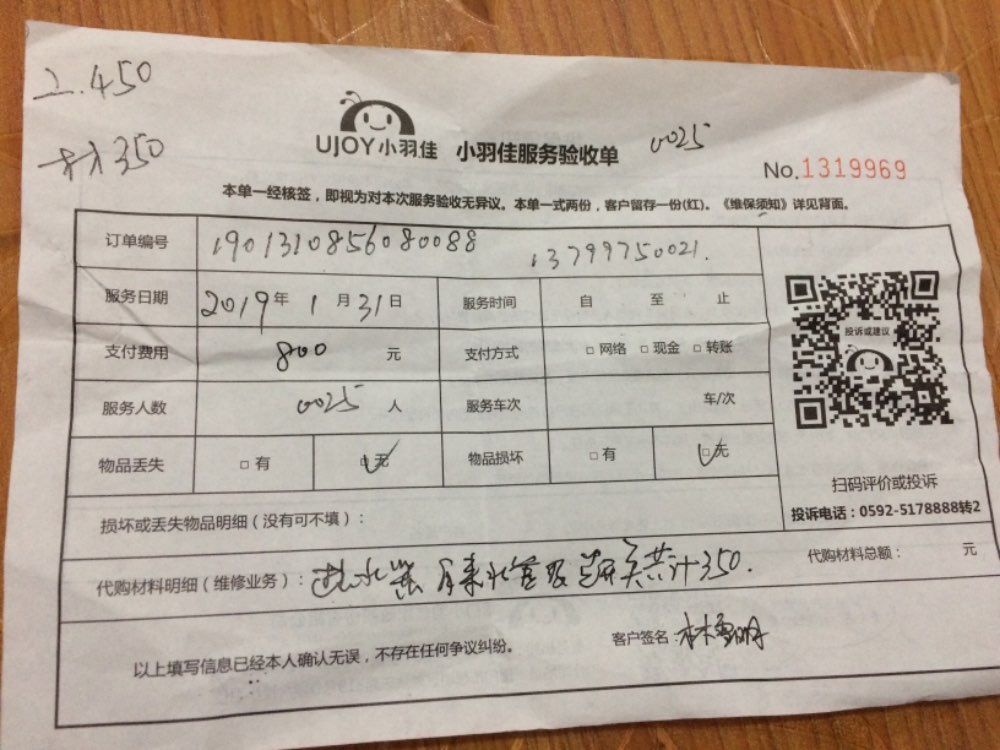 工.450
材350
UJOY小羽佳 小羽佳服务验收单 0025
No.1319969
本单一经核签，即视为对本次服务验收无异议。本单一式两份，客户留存一份(红)。《维保须知》详见背面。
订单编号 1901310856080088 13799750021.
服务日期 2019年1月31日 服务时间 自 至 止
支付费用 800 元 支付方式 □网络 □现金 □转账
服务人数 0025 人 服务车次 车/次
物品丢失 □有 □无 物品损坏 □有 □无
投诉或建议
扫码评价或投诉
投诉电话：0592-5178888转2
损坏或丢失物品明细（没有可不填）：
代购材料明细（维修业务）： 进水 水管 共计350.
代购材料总额： 元
以上填写信息已经本人确认无误，不存在任何争议纠纷。
客户签名：林雪明